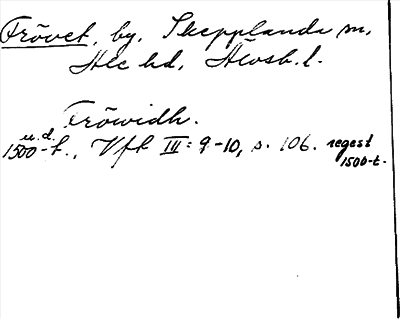 Frövet, by. Skepplanda sn,
Ale hd, Älvsb. l.
Fröwidh.
u.d.
1500-t., Vfk III: 9-10, s. 106. regest
1500-t.